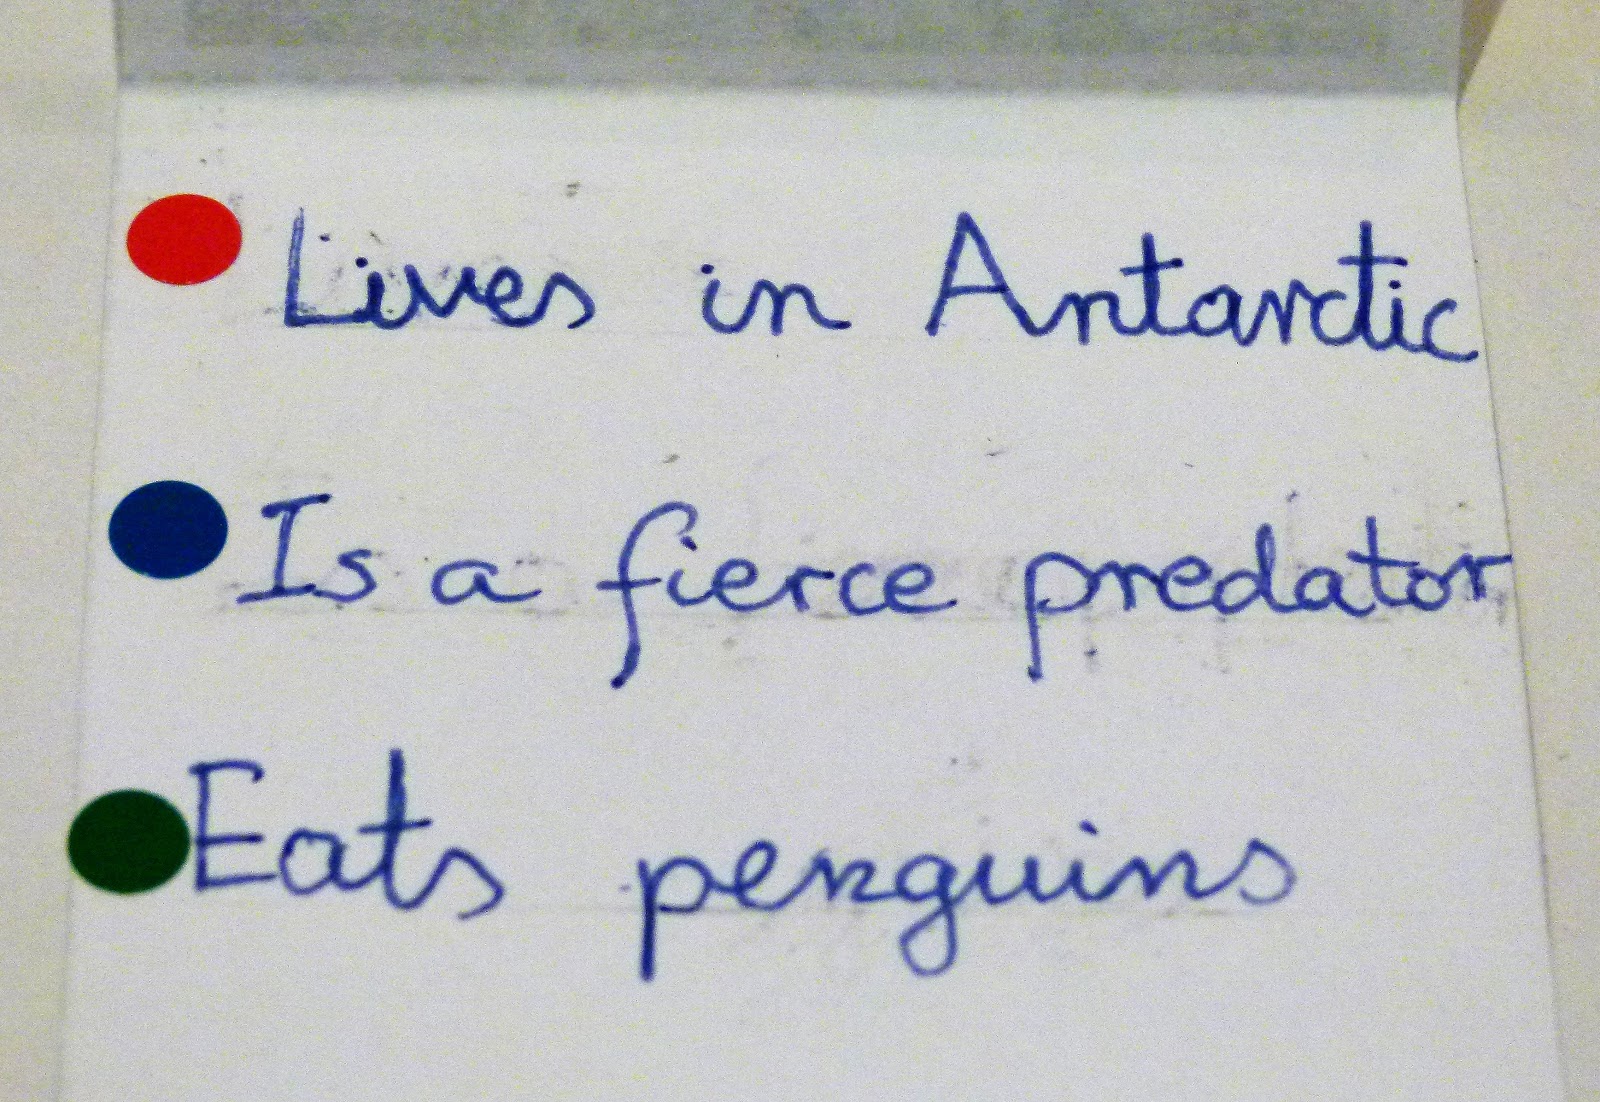 Lives in Antarctic
Is a fierce predator
Eats penguins